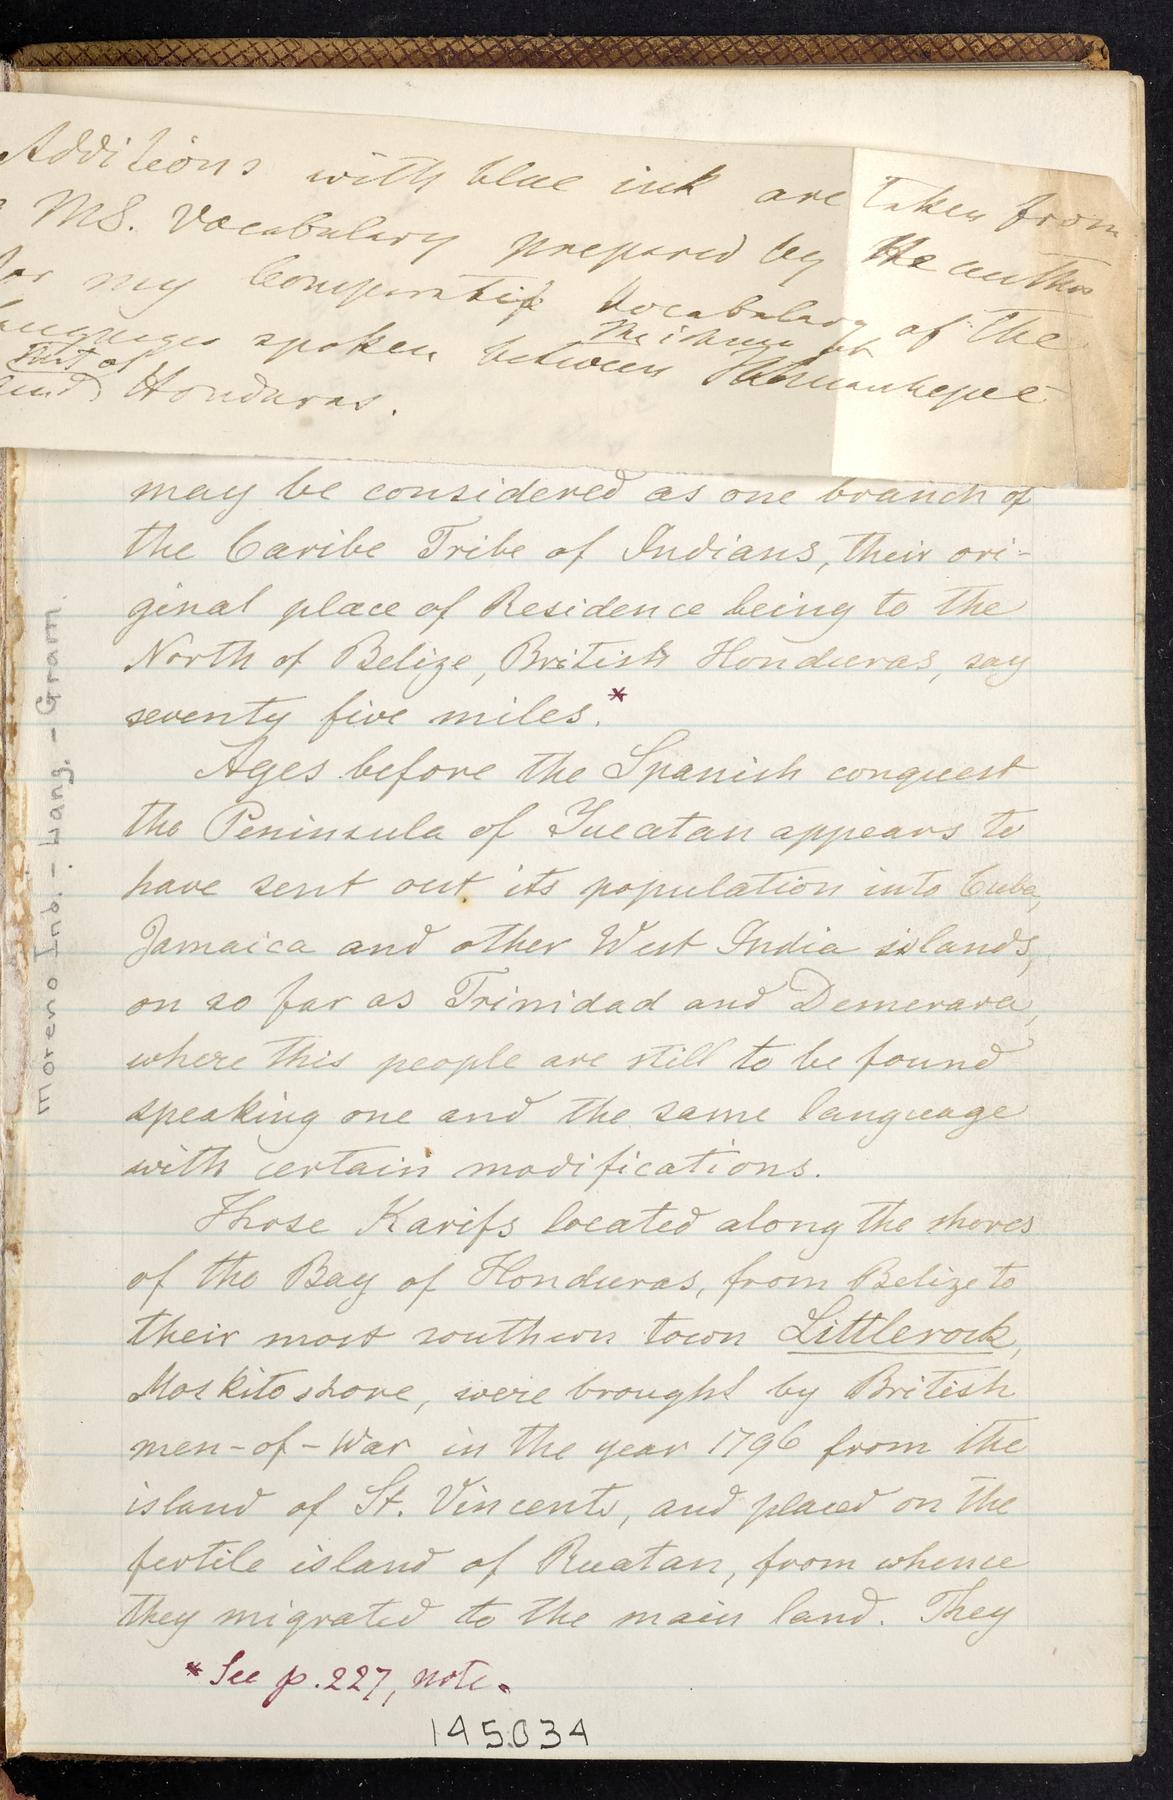 Additions with blue ink are taken from
MS. Vocabulary prepared by the author
for my Comparativ Vocabulary of the
languages spoken between the isthmus of Tehuantepec
and that of Honduras.
may be considered as one branch of
the Caribe Tribe of Indians, their ori-
ginal place of Residence being to the
North of Belize, British Honduras, say
seventy five miles.*
Ages before the Spanish conquest
the Peninsula of Yucatan appears to
have sent out its population into Cuba,
Jamaica and other West India islands,
on so far as Trinidad and Demerara,
where this people are still to be found
speaking one and the same language
with certain modifications.
Those Karifs located along the shores
of the Bay of Honduras, from Belize to
their most southern town Littlerock,
Moskitoshore, were brought by British
men-of-war in the year 1796 from the
island of St. Vincents, and placed on the
fertile island of Ruatan, from whence
they migrated to the main land. They
* See p. 227, note.
145034
Moreno Ind. - Lang. - Gram.